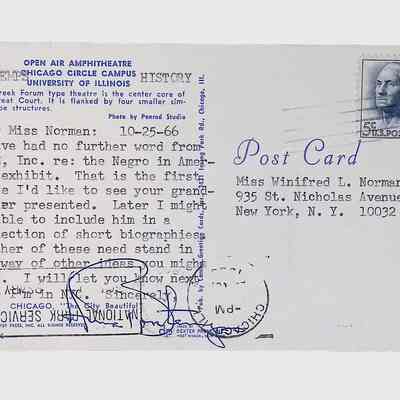 OPEN AIR AMPHITHEATRE
CHICAGO CIRCLE CAMPUS
UNIVERSITY OF ILLINOIS
HISTORY
reek Forum type theatre is the center core of
reat Court. It is flanked by four smaller sim-
pe structures.
Photo by Penrod Studio
Miss Norman: 10-25-66
ve had no further word from
, Inc. re: the Negro in Amer-
exhibit. That is the first
e I'd like to see your grand-
er presented. Later I might
ble to include him in a
ction of short biographies
ther of these need stand in
way of other ideas you might
. I will let you know next
I'm in NYC. Sincerely
CHICAGO, "The City Beautiful"
NATIONAL PARK SERVICE
5c U.S. POST
Post Card
Miss Winifred L. Norman
935 St. Nicholas Avenue
New York, N. Y. 10032
CHICAGO
PM